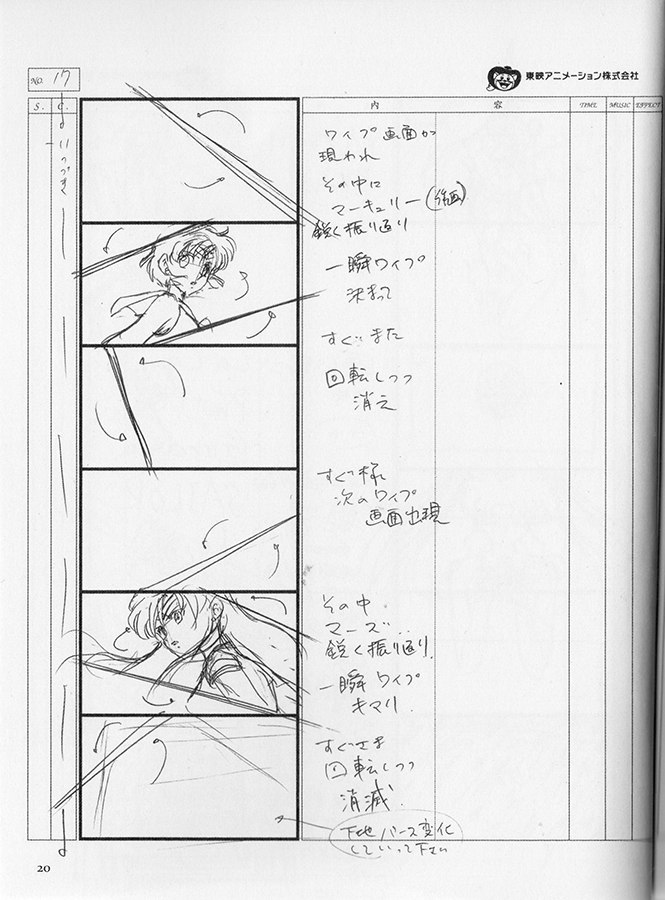 NO. 17
東映アニメーション株式会社
S. C. 内 容 TIME MUSIC EFFECT
ワイプ画面が
現われ
その中に
マーキュリー(作画)
鋭く振り返り
一瞬ワイプ
決まって
すぐまた
回転しつつ
消え
すぐ様
次のワイプ
画面出現
その中
マーズ..
鋭く振り返り
一瞬ワイプ
キマリ.
すぐさま
回転しつつ
消滅.
下地パース変化
していって下さい
20